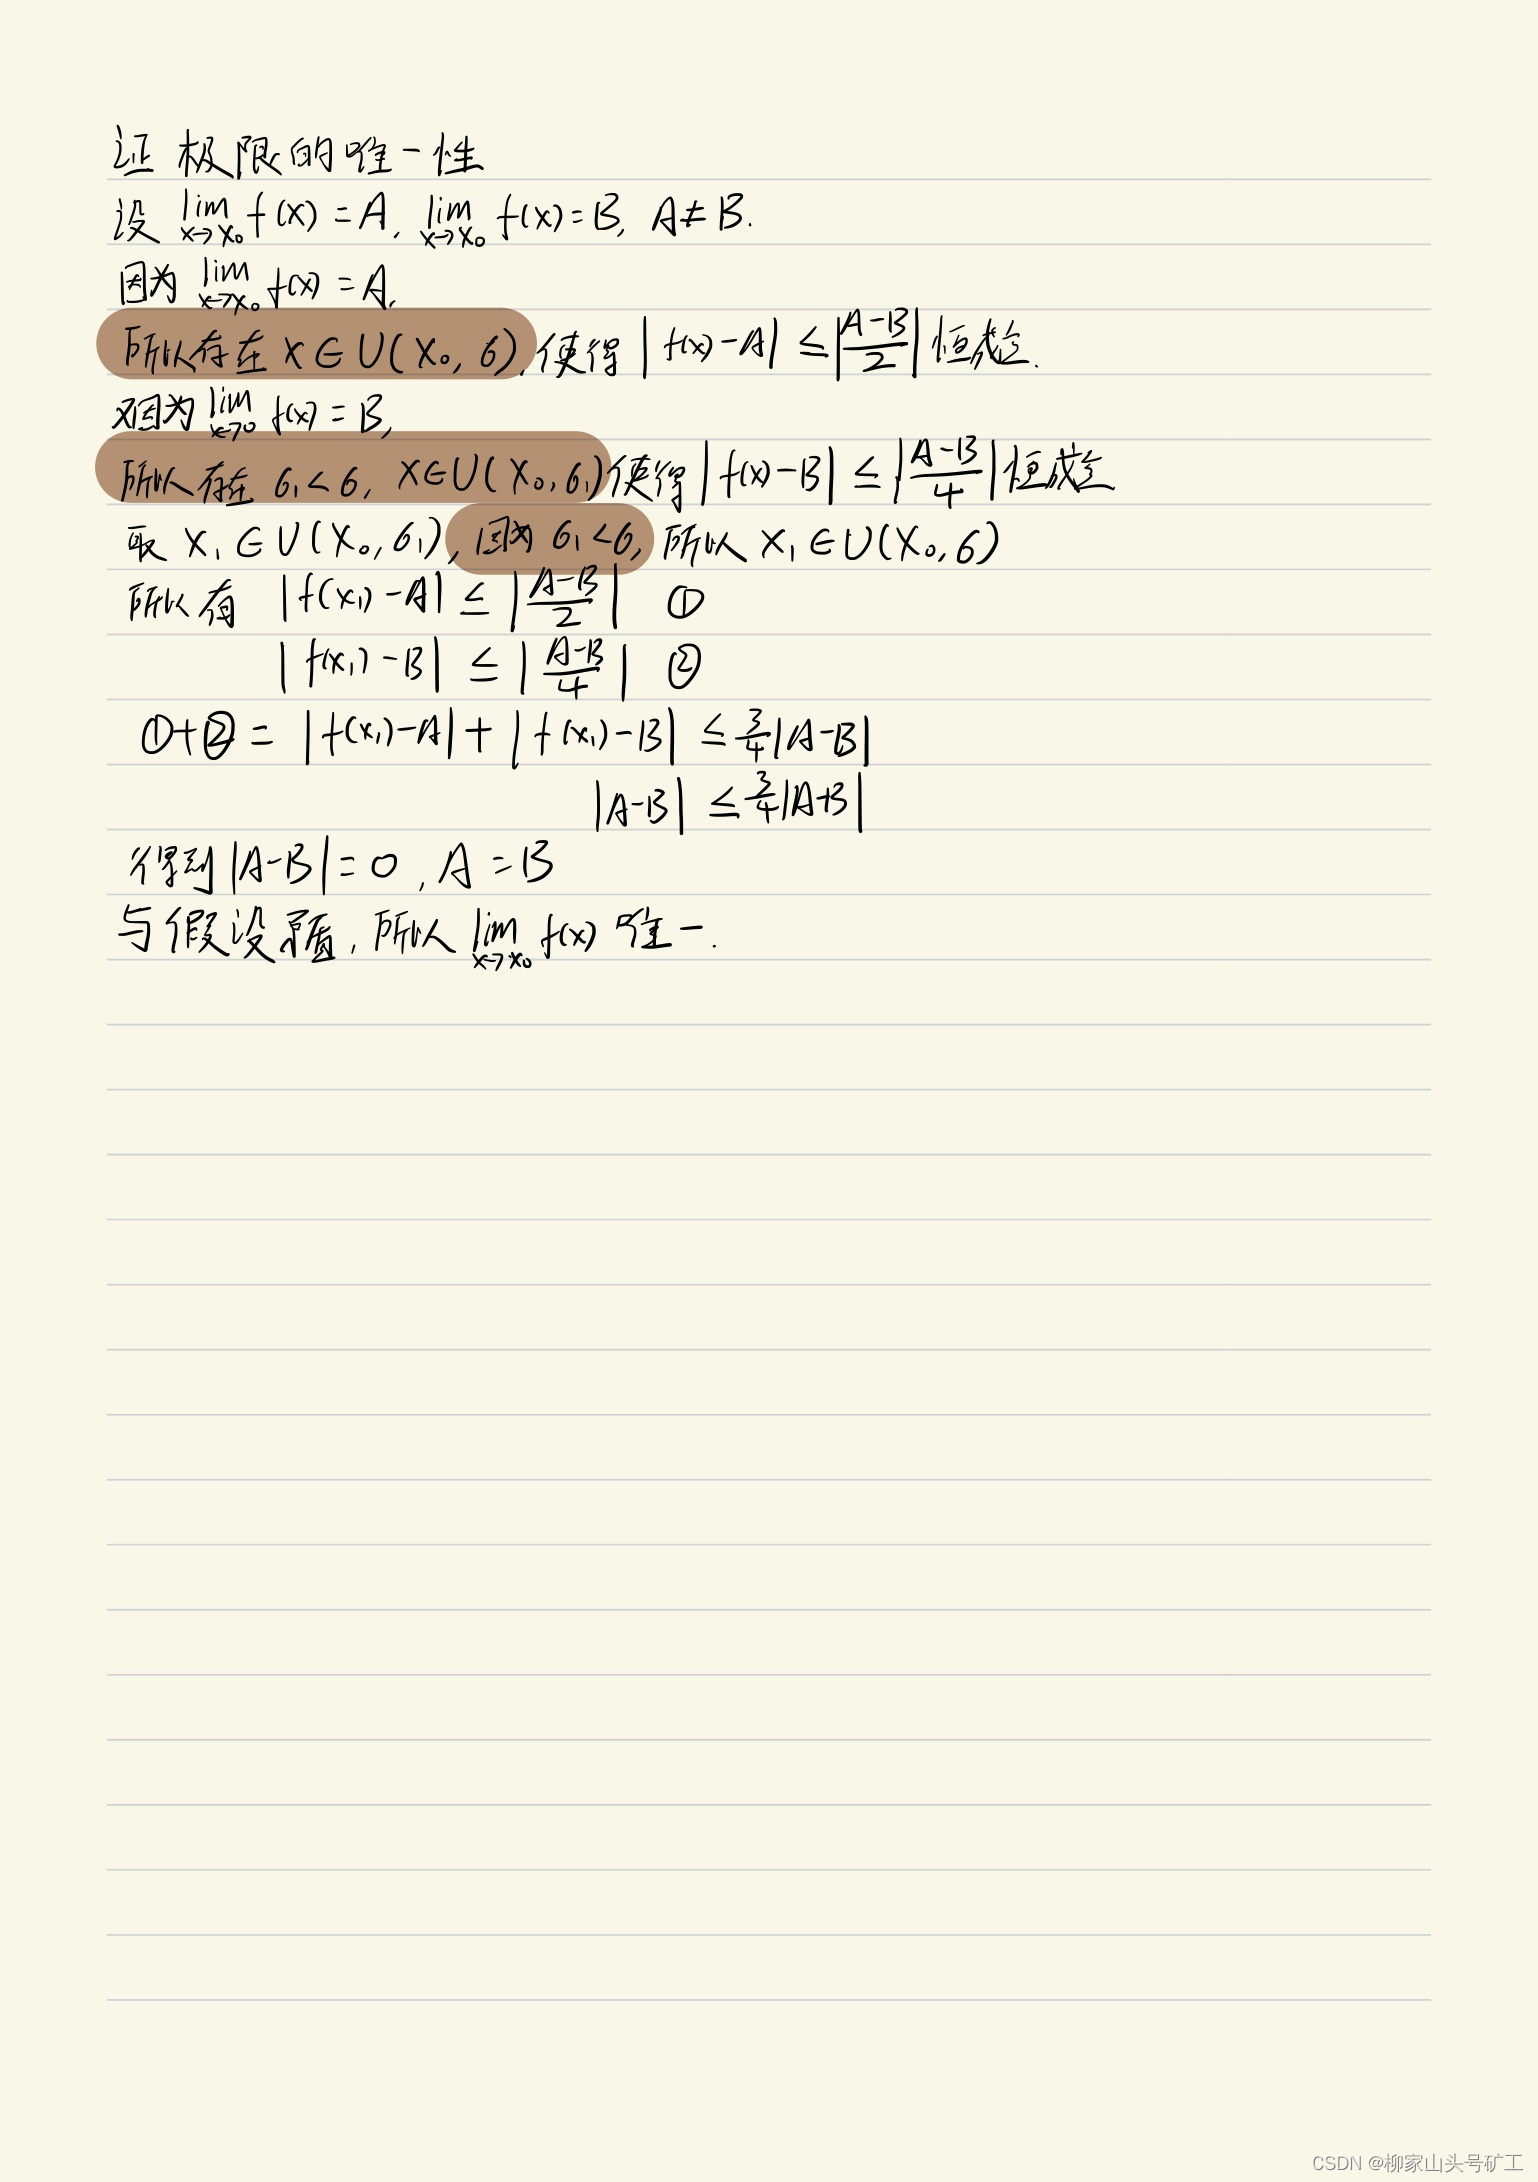 证 极限的唯一性
设 lim x→x₀ f(x) = A, lim x→x₀ f(x) = B, A ≠ B.
因为 lim x→x₀ f(x) = A,
所以存在 x ∈ U(x₀, 6), 使得 |f(x) - A| ≤ |(A-B)/2| 恒成立.
又因为 lim x→0 f(x) = B,
所以存在 6₁ < 6, x ∈ U(x₀, 6₁) 使得 |f(x) - B| ≤ |(A-B)/4| 恒成立
取 x₁ ∈ U(x₀, 6₁), 因为 6₁ < 6, 所以 x₁ ∈ U(x₀, 6)
所以有 |f(x₁) - A| ≤ |(A-B)/2| ①
|f(x₁) - B| ≤ |(A-B)/4| ②
①+② = |f(x₁) - A| + |f(x₁) - B| ≤ 3/4 |A-B|
|A-B| ≤ 3/4 |A-B|
得到 |A-B| = 0, A = B
与假设矛盾, 所以 lim x→x₀ f(x) 唯一.
CSDN @柳家山头号矿工